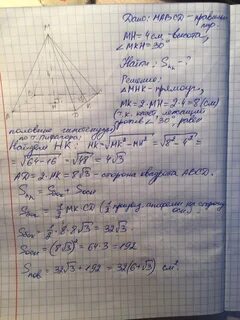 Дано: MABCD - правильн.
пир.
MH = 4см - высота,
∠MKH = 30°
Найти: Sпов - ?
Решение:
△MHK - прямоуг.
MK = 2·MH = 2·4 = 8(см)
(т.к. катет, лежащий
против ∠30°, равен
половине гипотенузы)
по т. Пифагора:
Найдём HK: HK = √MK² - MH² = √8² - 4² =
= √64-16 = √48 = 4√3
AD = 2·HK = 8√3 - сторона квадрата ABCD.
Sпов = Sбок + Sосн
Sбок = ½ MK·CD (½ произвед. апофемы на сторону
осн)
Sбок = ½·8·8√3 = 32√3
Sосн = (8√3)² = 64·3 = 192
Sпов = 32√3 + 192 = 32(6+√3) см².